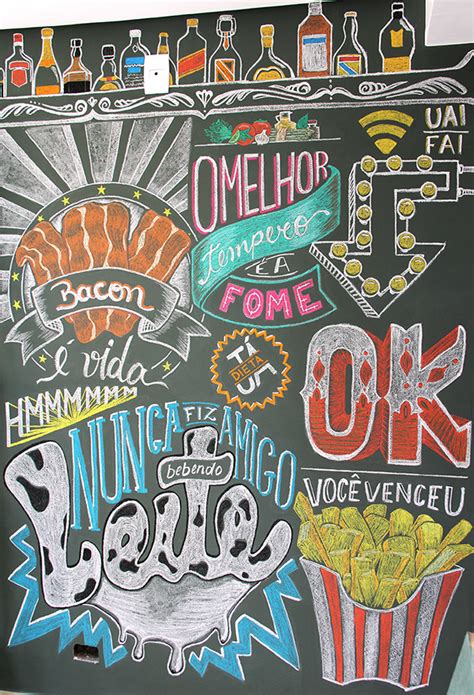 UAI
FAI
O MELHOR
tempero
é a
FOME
Bacon
é vida
HMMMMMMM
TÁ
DIETA
OK
VOCÊ VENCEU
NUNCA FIZ AMIGO
bebendo
Leite